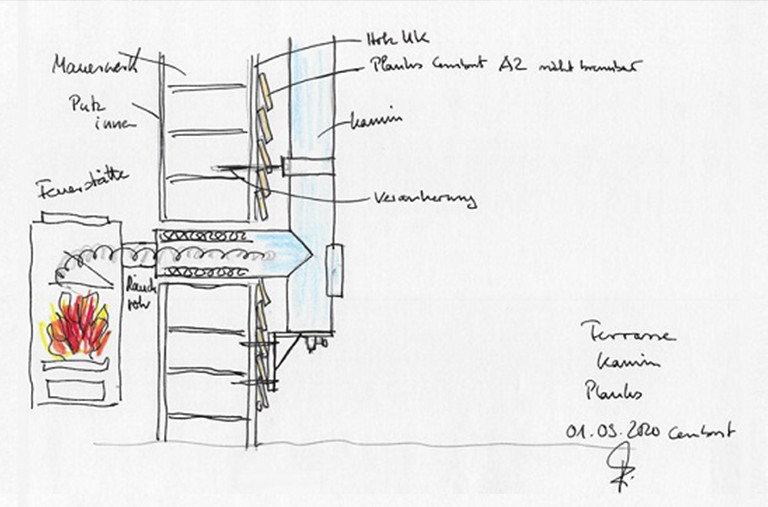 Holz UK
Mauerwerk
Planks Cembrit A2 nicht brennbar
Putz
innen
Kamin
Feuerstätte
Verankerung
Rauch
rohr
Terrasse
Kamin
Planks
01.05.2020 Cembrit